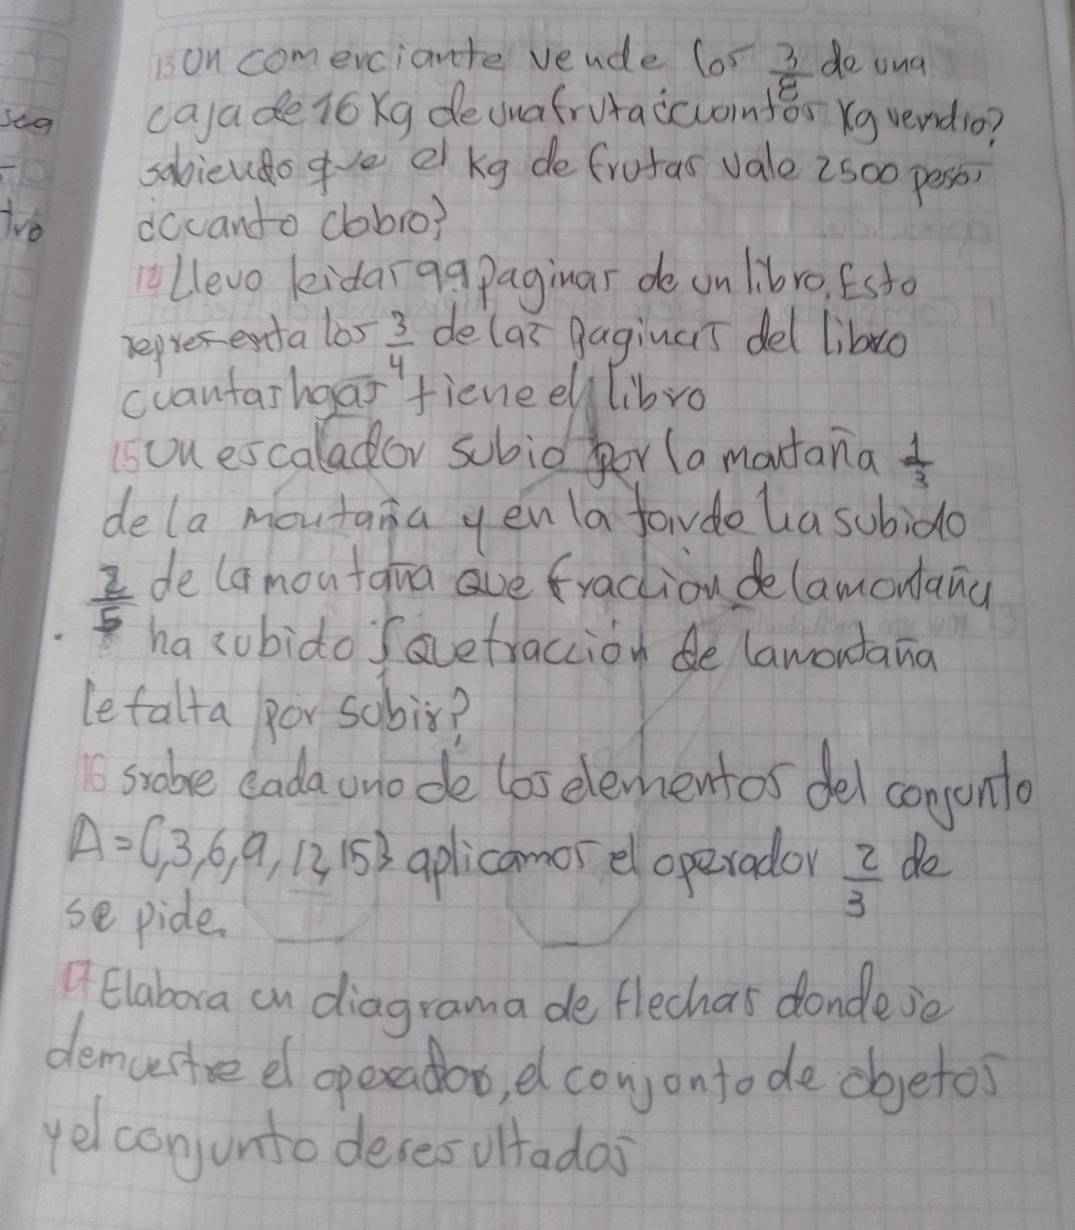 13 Un comerciante vende los 3/8 de una
caja de 16 Kg de una fruta ¿cuantos Kg vendio?
sabiendo que el Kg de frutas vale 2500 pesos
¿cuanto cobro?
Llevo leidas 99 paginas de un libro. Esto
representa los 3/4 de las Paginas del libro
cuantas hojas tiene el libro
15 Un escalador subio por la mañtaña 1/3
de la montaña y en la tarde ha subido
2/5 de la montaña que fraccion de la montaña
ha subido? Que fracción de la montaña
le falta por subir?
16 srobre cada uno de los elementos del conjunto
A = {,3,6,9,12,15} aplicamos el operador 2/3 de
se pide.
17 Elabora un diagrama de flechas donde se
demuestre el operador, el conjonto de objetos
y el conjunto de resultados
sea